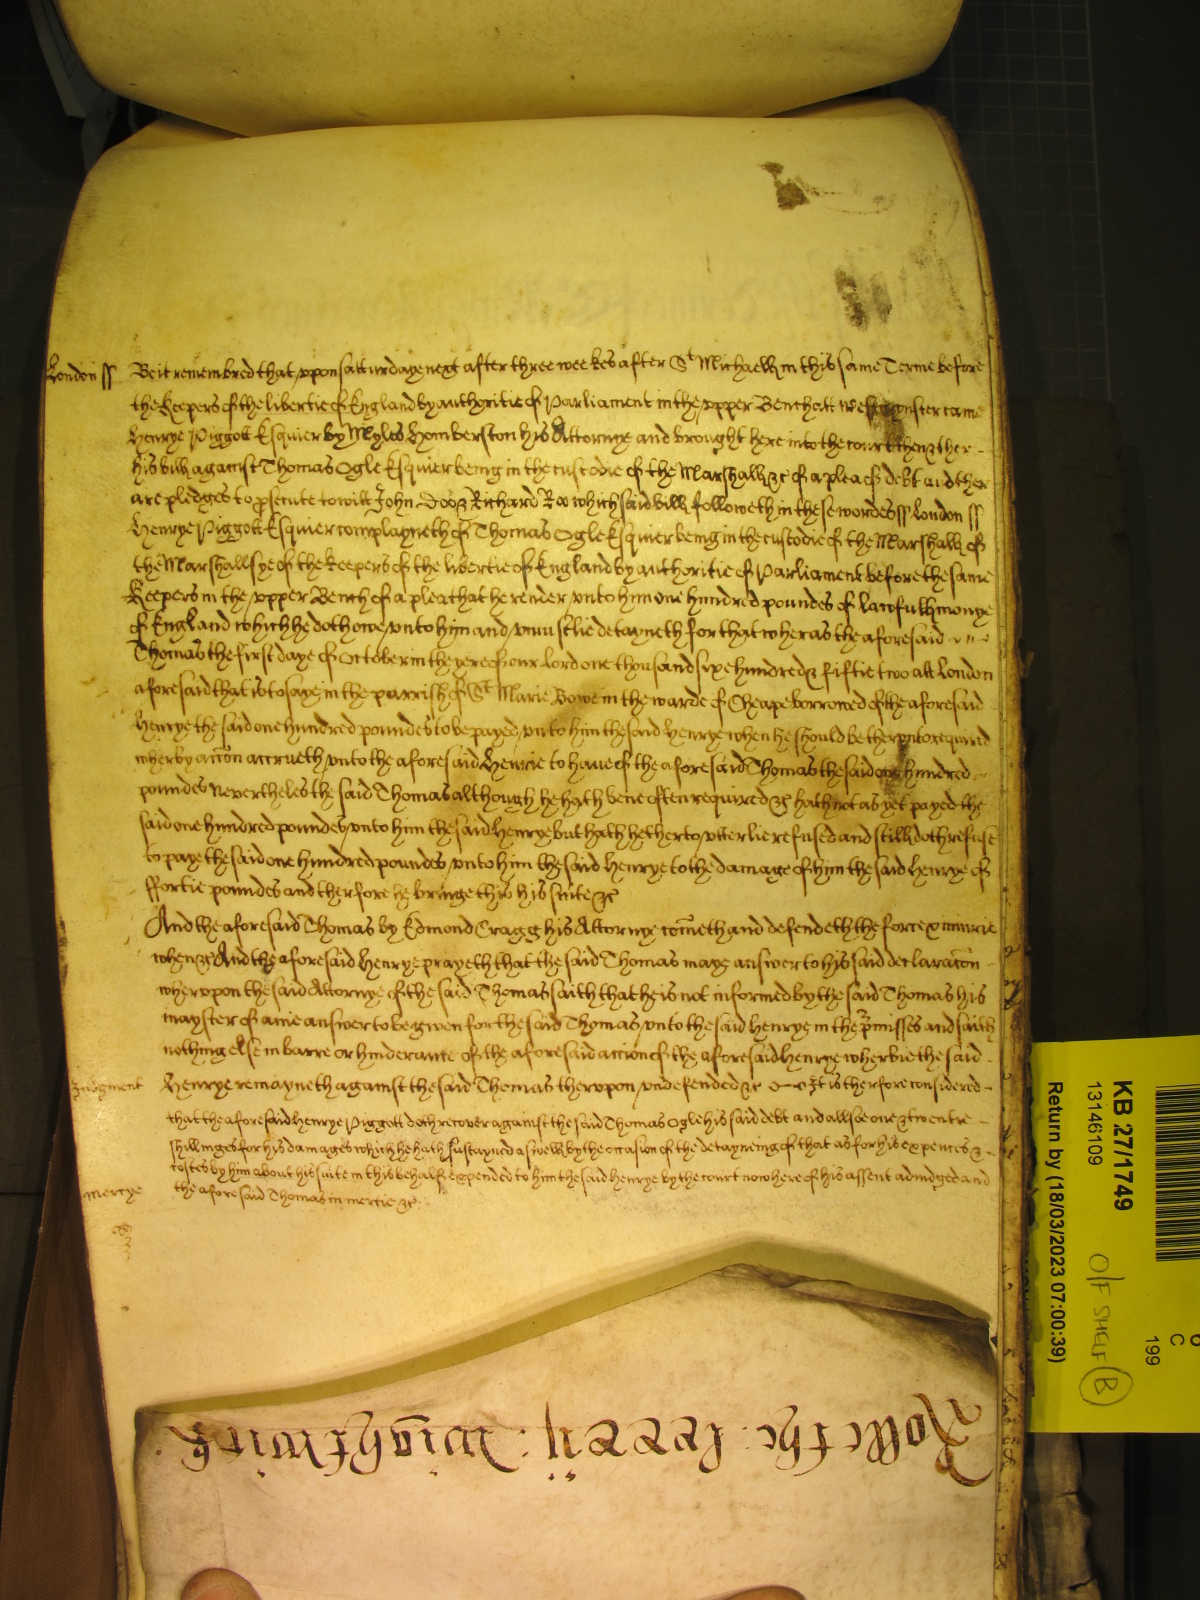 London ss Be it remembred that uppon satturdaye next after three weekes after St Michaell in this same Terme before
the Keepers of the libertie of England by authoritie of Parliament in the upper Bench att Westminster came
Henrye Piggott Esquier by Myles Hemberston his Attornye and brought here into the court then & ther
his bill against Thomas Ogle Esquier being in the custodie of the Marshall &c of a plea of debt and ther
are pledges to prosecute to witt John Doo & Richard Roo which said bill followeth in these wordes ss London ss
Henrye Piggott Esquier complayneth of Thomas Ogle Esquier being in the custodie of the Marshall of
the Marshallsye of the Keepers of the libertie of England by authoritie of Parliament before the same
Keepers in the upper Bench of a plea that he render unto him one hundred poundes of lawfull monye
of England which he doth owe unto him and uniustlie detayneth for that wheras the aforesaid
Thomas the first daye of October in the yere of our Lord one thousand six hundred & fiftie two att London
aforesaid that is to saye in the parrish of St Marie Bowe in the warde of Cheape borrowed of the aforesaid
Henrye the said one hundred poundes to be payed unto him the said Henrye when he should be therunto required
wherby accon accrueth unto the aforesaid Henrie to have of the aforesaid Thomas the said one hundred
poundes Nevertheles the said Thomas although he hath bene often required &c hath not as yet payed the
said one hundred poundes unto him the said Henrye but hath hetherto utterlie refused and still doth refuse
to paye the said one hundred poundes unto him the said Henrye to the damage of him the said Henrye of
ffortie poundes and therfore he bringe this his suite &c
And the aforesaid Thomas by Edmond Cragg his Attornye cometh and defendeth the force & iniurie
when &c And the aforesaid Henrye prayeth that the said Thomas maye answer to his said declaracon
wherupon the said Attornye of the said Thomas saith that he is not informed by the said Thomas his
mayster of anie answer to be given for the said Thomas unto the said Henrye in the premisses and saith
nothing else in barre or hinderance of the aforesaid accion of the aforesaid Henrye wherbie the said
Judgment Henrye remayneth against the said Thomas therupon undefended &c It is therfore considered
that the aforesaid Henrye Piggott doth recover against the said Thomas Ogle his said debt and allsoe one & twentie
shillinges for his damages which he hath sustayned aswell by the occasion of the detayneing of that as for his expences &
costes by him about his suite in this behalf expended to him the said Henrye by the court now here of his assent adiudged and
mercye the aforesaid Thomas in mercie &c
Rolle the
KB 27/1749
13146109
Return by (18/03/2023 07:00:39)
O/F SHELF B
C
199